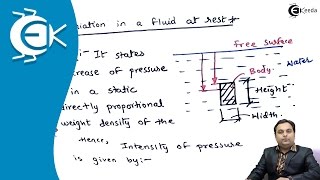 EKeeda
iation in a fluid at rest
:- It states
crease of pressure
in a static
directly proportional
weight density of the
Hence, Intensity of pressure
is given by:-
free surface
Water
Body
Height
Width